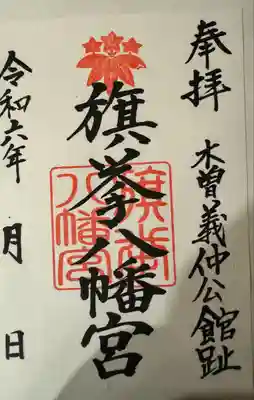 奉拝
木曽義仲公館趾
旗挙八幡宮
旗挙八幡宮
令和六年 月 日